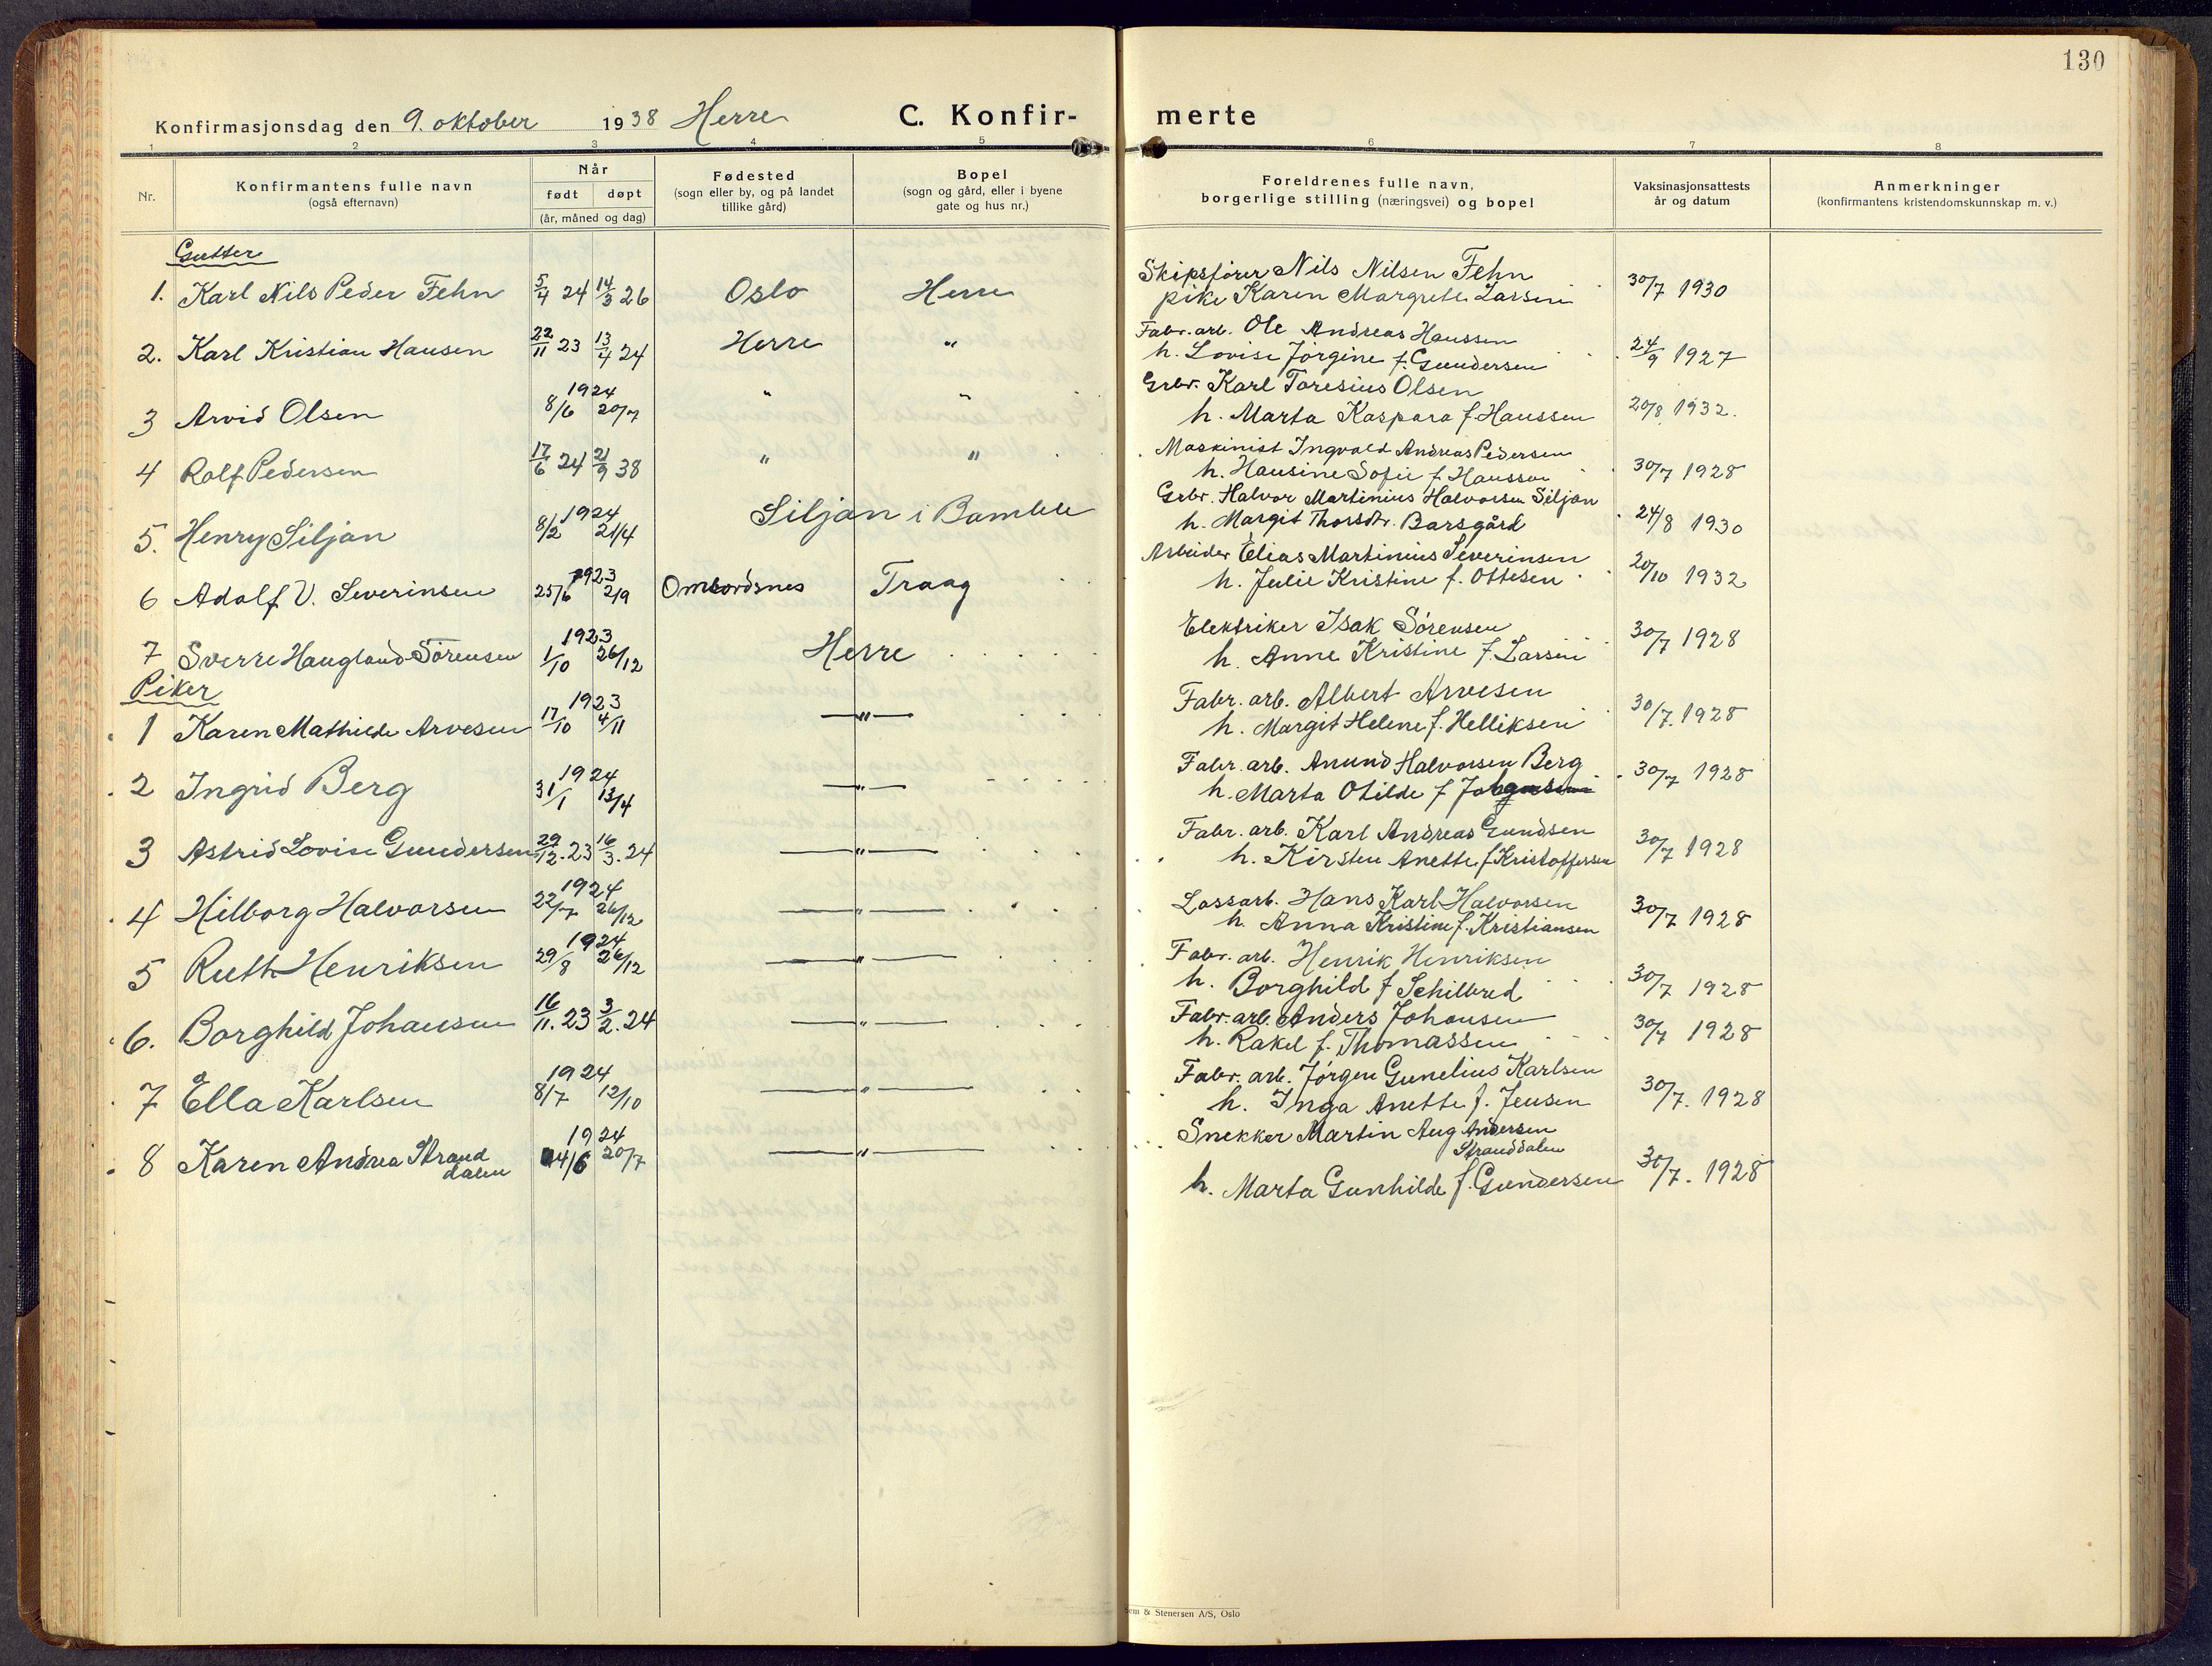 130
Konfirmasjonsdag den 9. oktober 1938 Herre C. Konfir- merte
1 2 3 4 5 6 7 8
Nr.
Konfirmantens fulle navn
(også efternavn)
Når
født døpt
(år, måned og dag)
Fødested
(sogn eller by, og på landet
tillike gård)
Bopel
(sogn og gård, eller i byene
gate og hus nr.)
Foreldrenes fulle navn,
borgerlige stilling (næringsvei) og bopel
Vaksinasjonsattests
år og datum
Anmerkninger
(konfirmantens kristendomskunnskap m. v.)
Gutter
1. Karl Nils Peder Fehn 5/4 24 14/3 26 Oslo Herre Skipsfører Nils Nilsen Fehn
pike Karen Margrethe Larsen 30/7 1930
2. Karl Kristian Hansen 22/11 23 13/4 24 Herre " Fabr. arb. Ole Andreas Hanssen
h. Lovise Jørgine f. Gundersen 24/9 1927
3 Arvid Olsen 1924 8/6 20/7 " " Grbr. Karl Toresius Olsen
h. Marta Kaspara f. Hanssen 20/8 1932.
4 Rolf Pedersen 17/6 24 21/9 38 " " Maskinist Ingvald Andreas Pedersen
h. Hansine Sofie f. Hanssen 30/7 1928
5. Henry Siljan 1924 8/2 21/4 Siljan i Bamble Grbr. Halvor Martinius Halvorsen Siljan
h. Margit Thorsdtr. Barsgård 24/8 1930
6 Adolf V. Severinsen 1923 25/6 2/9 Ombordsnes Traag Arbeider Elias Martinius Severinsen
h. Julie Kristine f. Ottesen 20/10 1932
7 Sverre Haugland Sørensen 1923 1/10 26/12 Herre Elektriker Isak Sørensen
h. Anne Kristine f. Larsen 30/7 1928
Piker
1 Karen Mathilde Arvesen 1923 17/10 4/11 — " — Fabr. arb. Albert Arvesen
h. Margit Helene f. Helliksen 30/7. 1928
2 Ingrid Berg 1924 31/1 13/4 — " — Fabr. arb. Anund Halvorsen Berg
h. Marta Otilde f 30/7 1928
3 Astrid Lovise Gundersen 29/12. 23 16/3. 24 — " — Fabr. arb. Karl Andreas Gundsen
h. Kirsten Anette f Kristoffersen 30/7 1928
4 Hilborg Halvorsen 1924 22/7 26/12 — " — Lossarb. Hans Karl Halvorsen
h. Anna Kristine f. Kristiansen 30/7 1928
5 Ruth Henriksen 1924 29/8 26/12 — " — Fabr. arb. Henrik Henriksen
h. Borghild f Schilbred 30/7 1928
6. Borghild Johansen 16/11. 23 3/2. 24 — " — Fabr. arb. Anders Johansen
h. Rakel f. Thomassen 30/7 1928
7 Ella Karlsen 1924 8/7 12/10 — " — Fabr. arb. Jørgen Gunelius Karlsen
h. Inga Anette f. Jensen 30/7. 1928
8 Karen Andrea Strand
dalen 1924 4/6 20/7 — " — Snekker Martin Aug Andersen
Stranddalen
h. Marta Gunhilde f. Gundersen 30/7. 1928
Sem & Stenersen A/S, Oslo